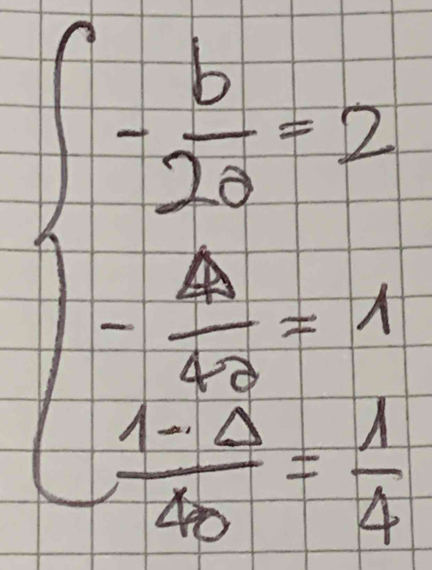 - b/2a = 2
- Δ/4a = 1
1 - Δ/4a = 1/4